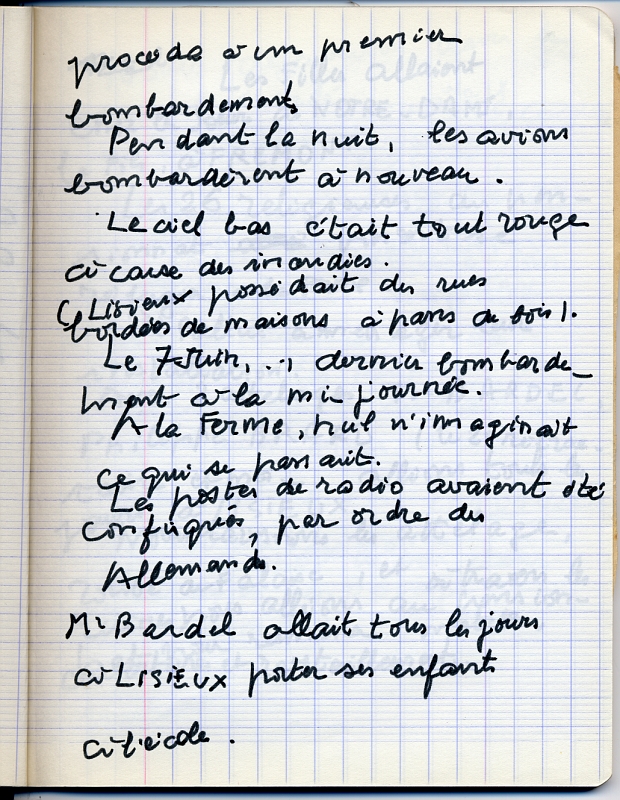 proceda à un premier
bombardement,
Pendant la nuit, les avions
bombardèrent à nouveau.
Le ciel bas était tout rouge
à cause des incendies.
(Lisieux possédait des rues
bordées de maisons à pans de bois).
Le 7 Juin, ..., dernier bombarde-
ment à la mi journée.
A la Ferme, nul n'imaginait
ce qui se passait.
Les postes de radio avaient été
confisqués, par ordre des
Allemands.
Mr Bardel allait tous les jours
à LISIEUX porter ses enfants
à l'école.